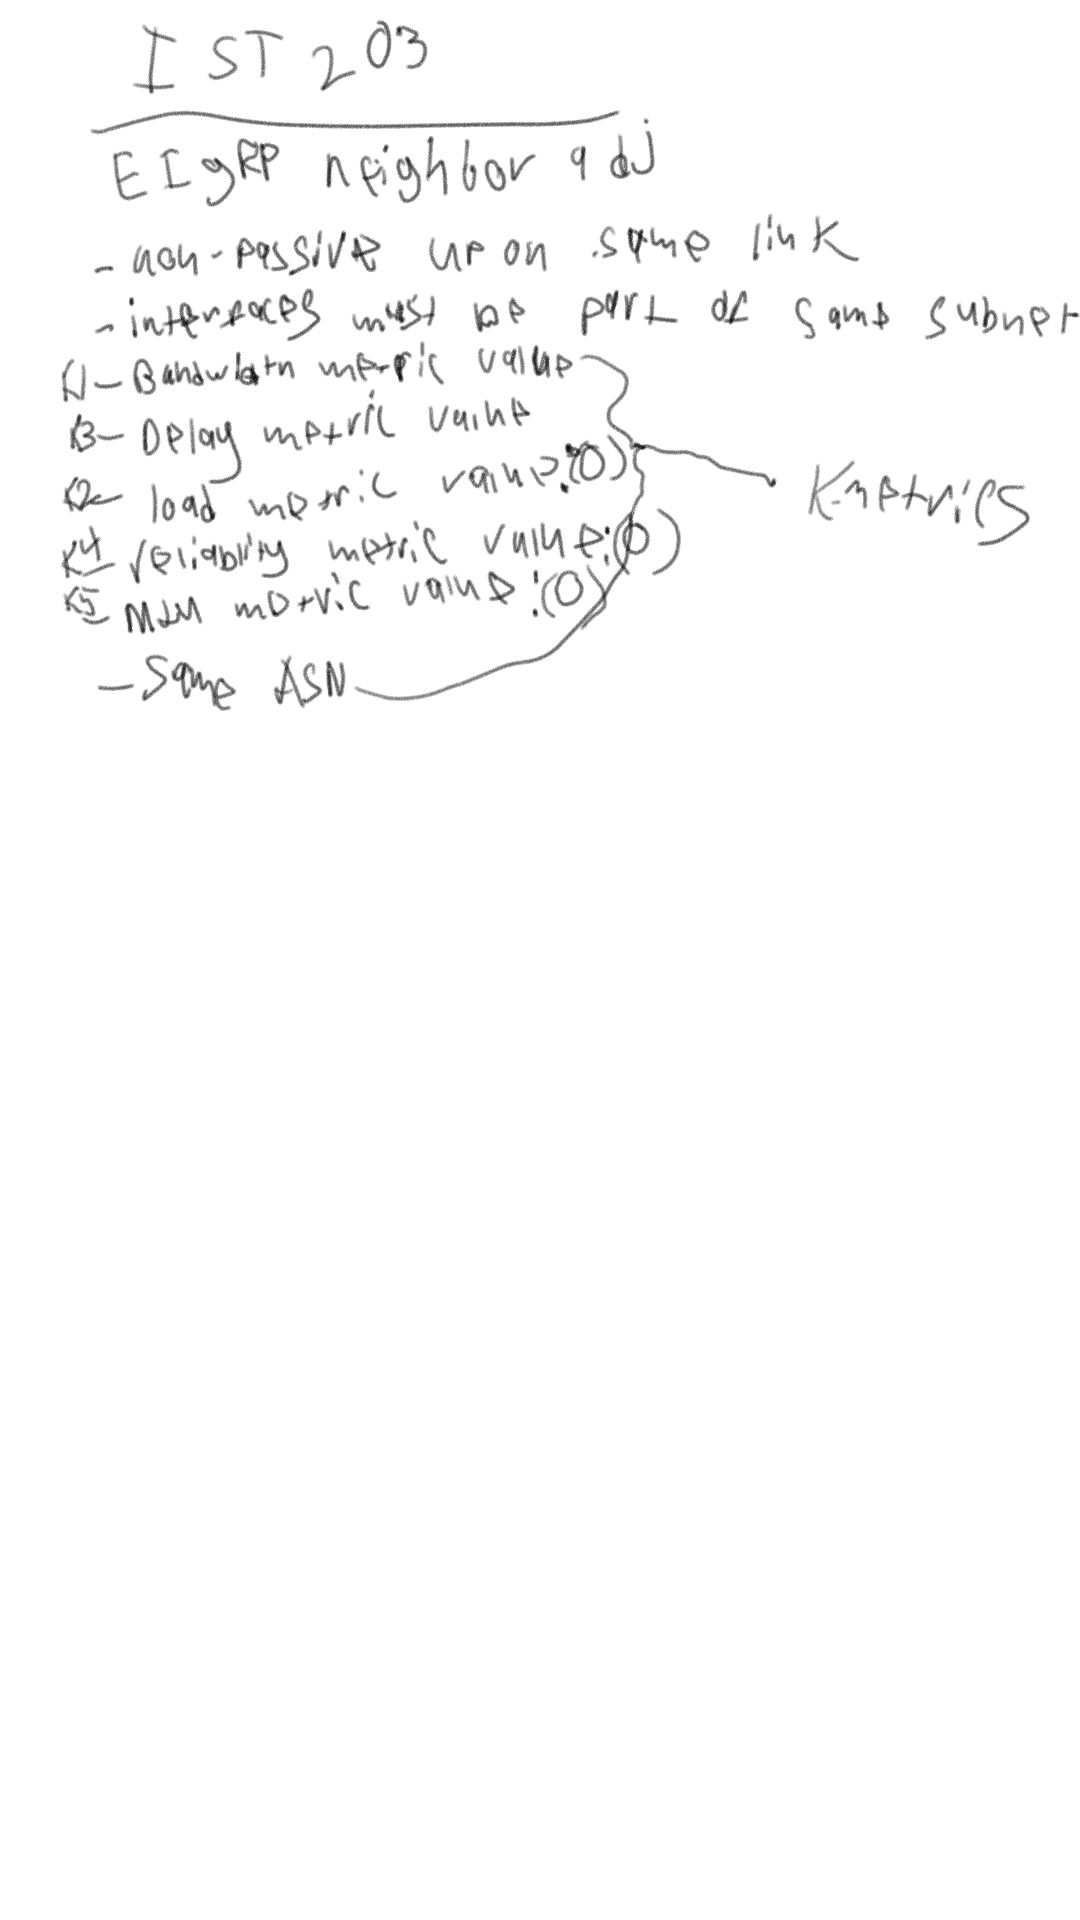 IST 203
EIgRP neighbor adj
- non-passive up on same link
- interfaces must be part of same subnet
K1- Bandwidth metric value
K3- Delay metric value
K2- load metric value:(0)
K-metrics
K4- reliability metric value:(0)
K5- metric value:(0)
- Same ASN